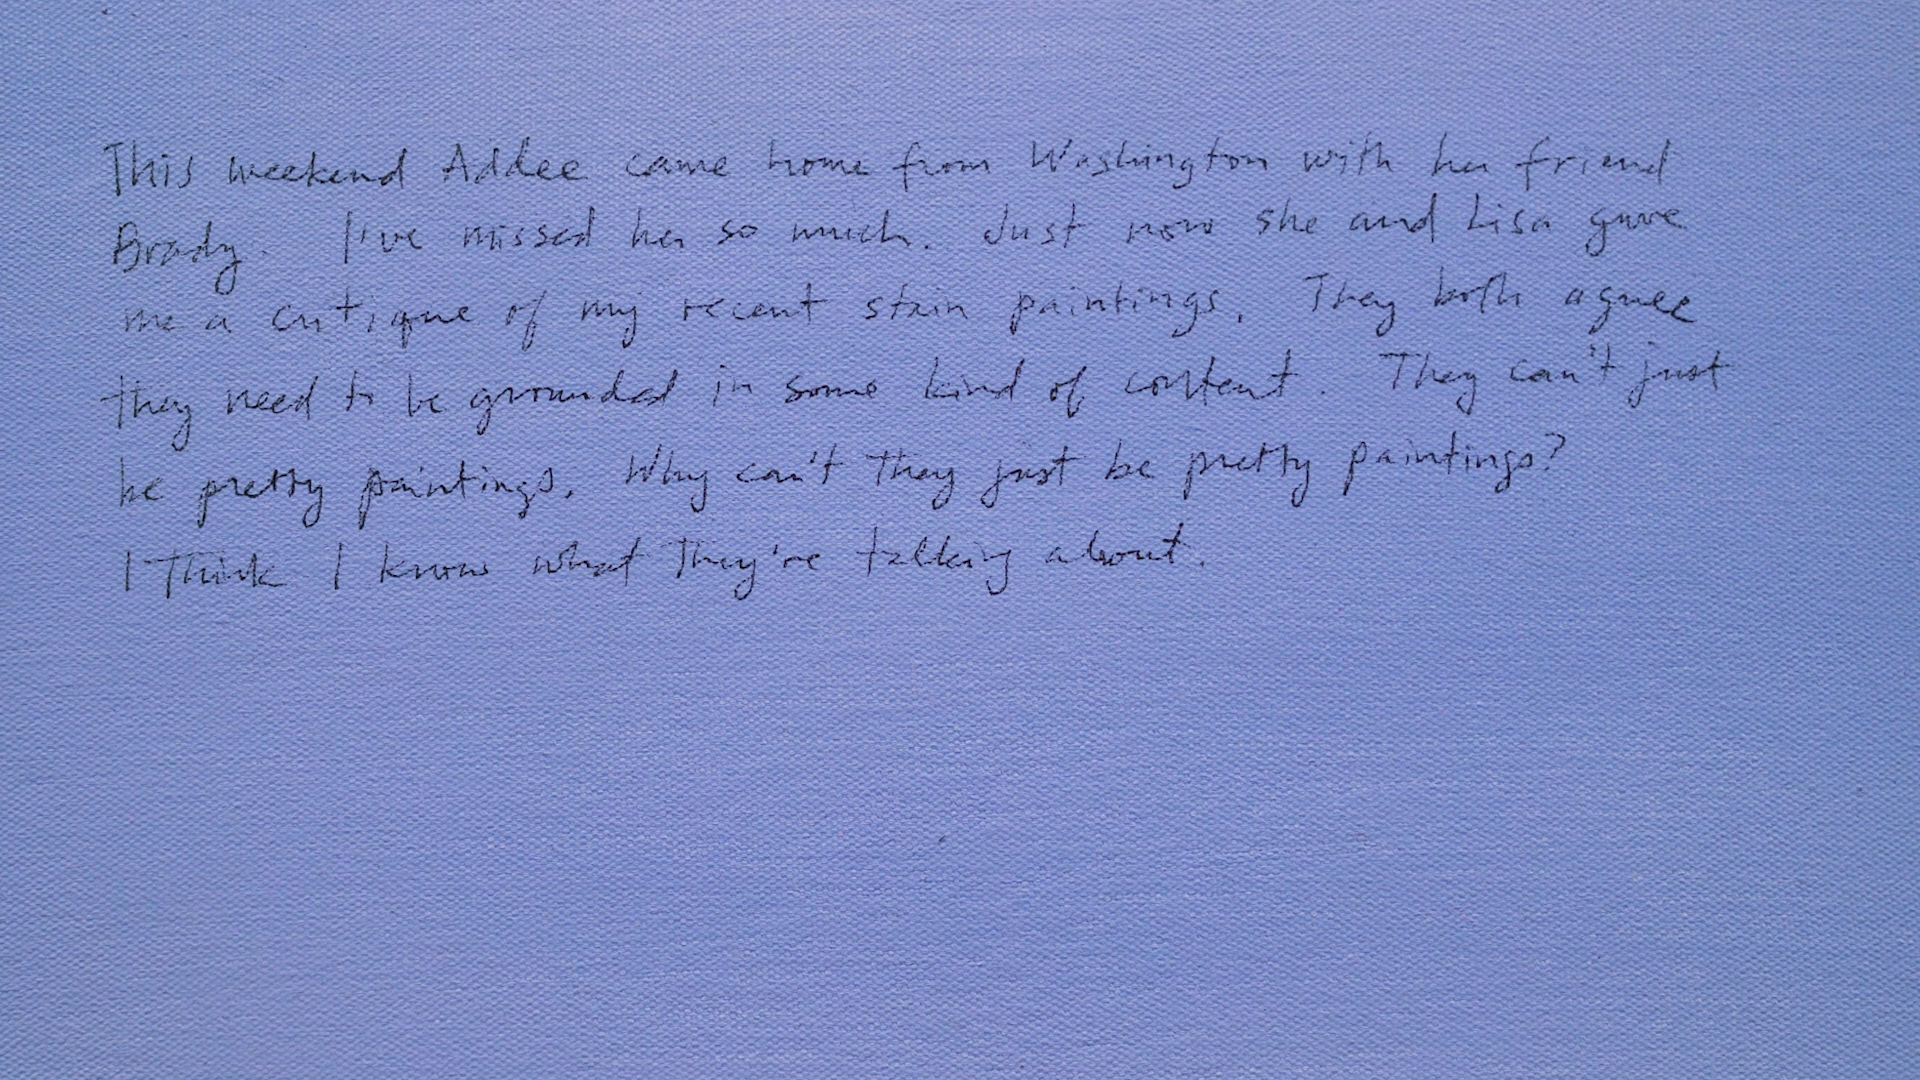 This weekend Addee came home from Washington with her friend
Brady. I've missed her so much. Just now she and Lisa gave
me a critique of my recent stain paintings. They both agree
they need to be grounded in some kind of content. They can't just
be pretty paintings. Why can't they just be pretty paintings?
I think I know what they're talking about.